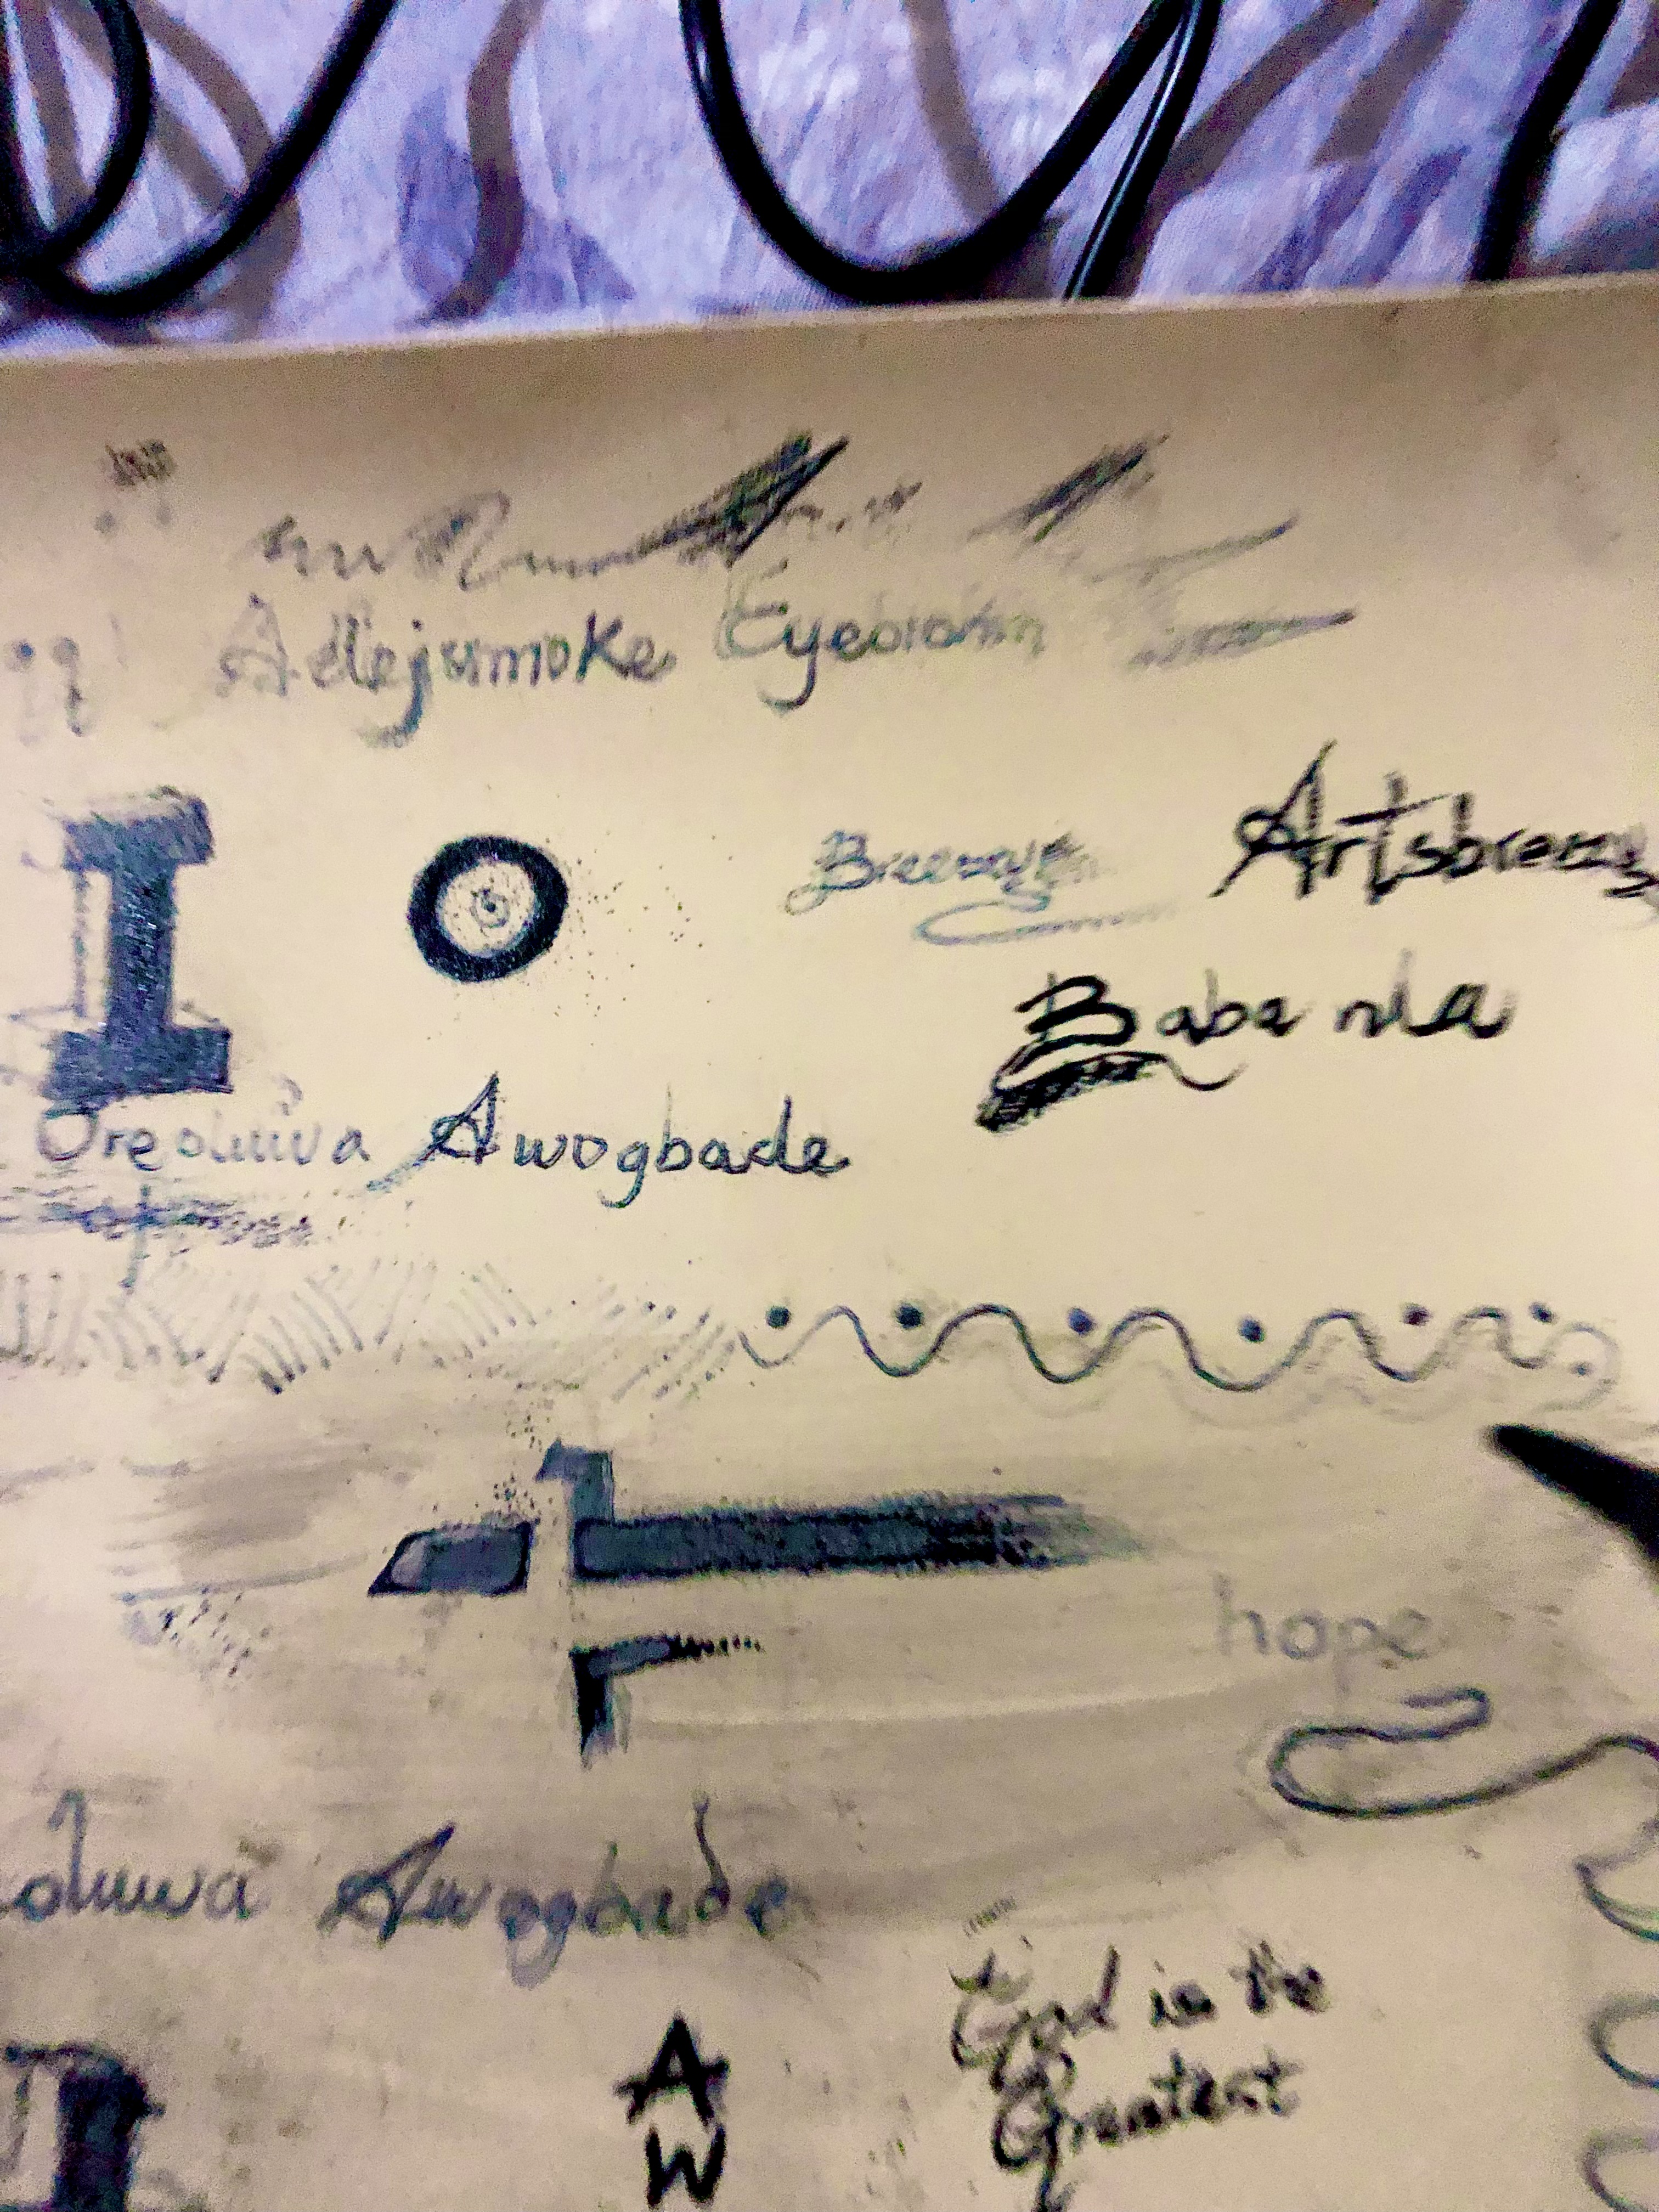 Adejumoke
I
Breezy Artsbreezy
Baba nla
Oreoluwa Awogbade
hope
oluwa Awogbade
God is the
Greatest
A
W